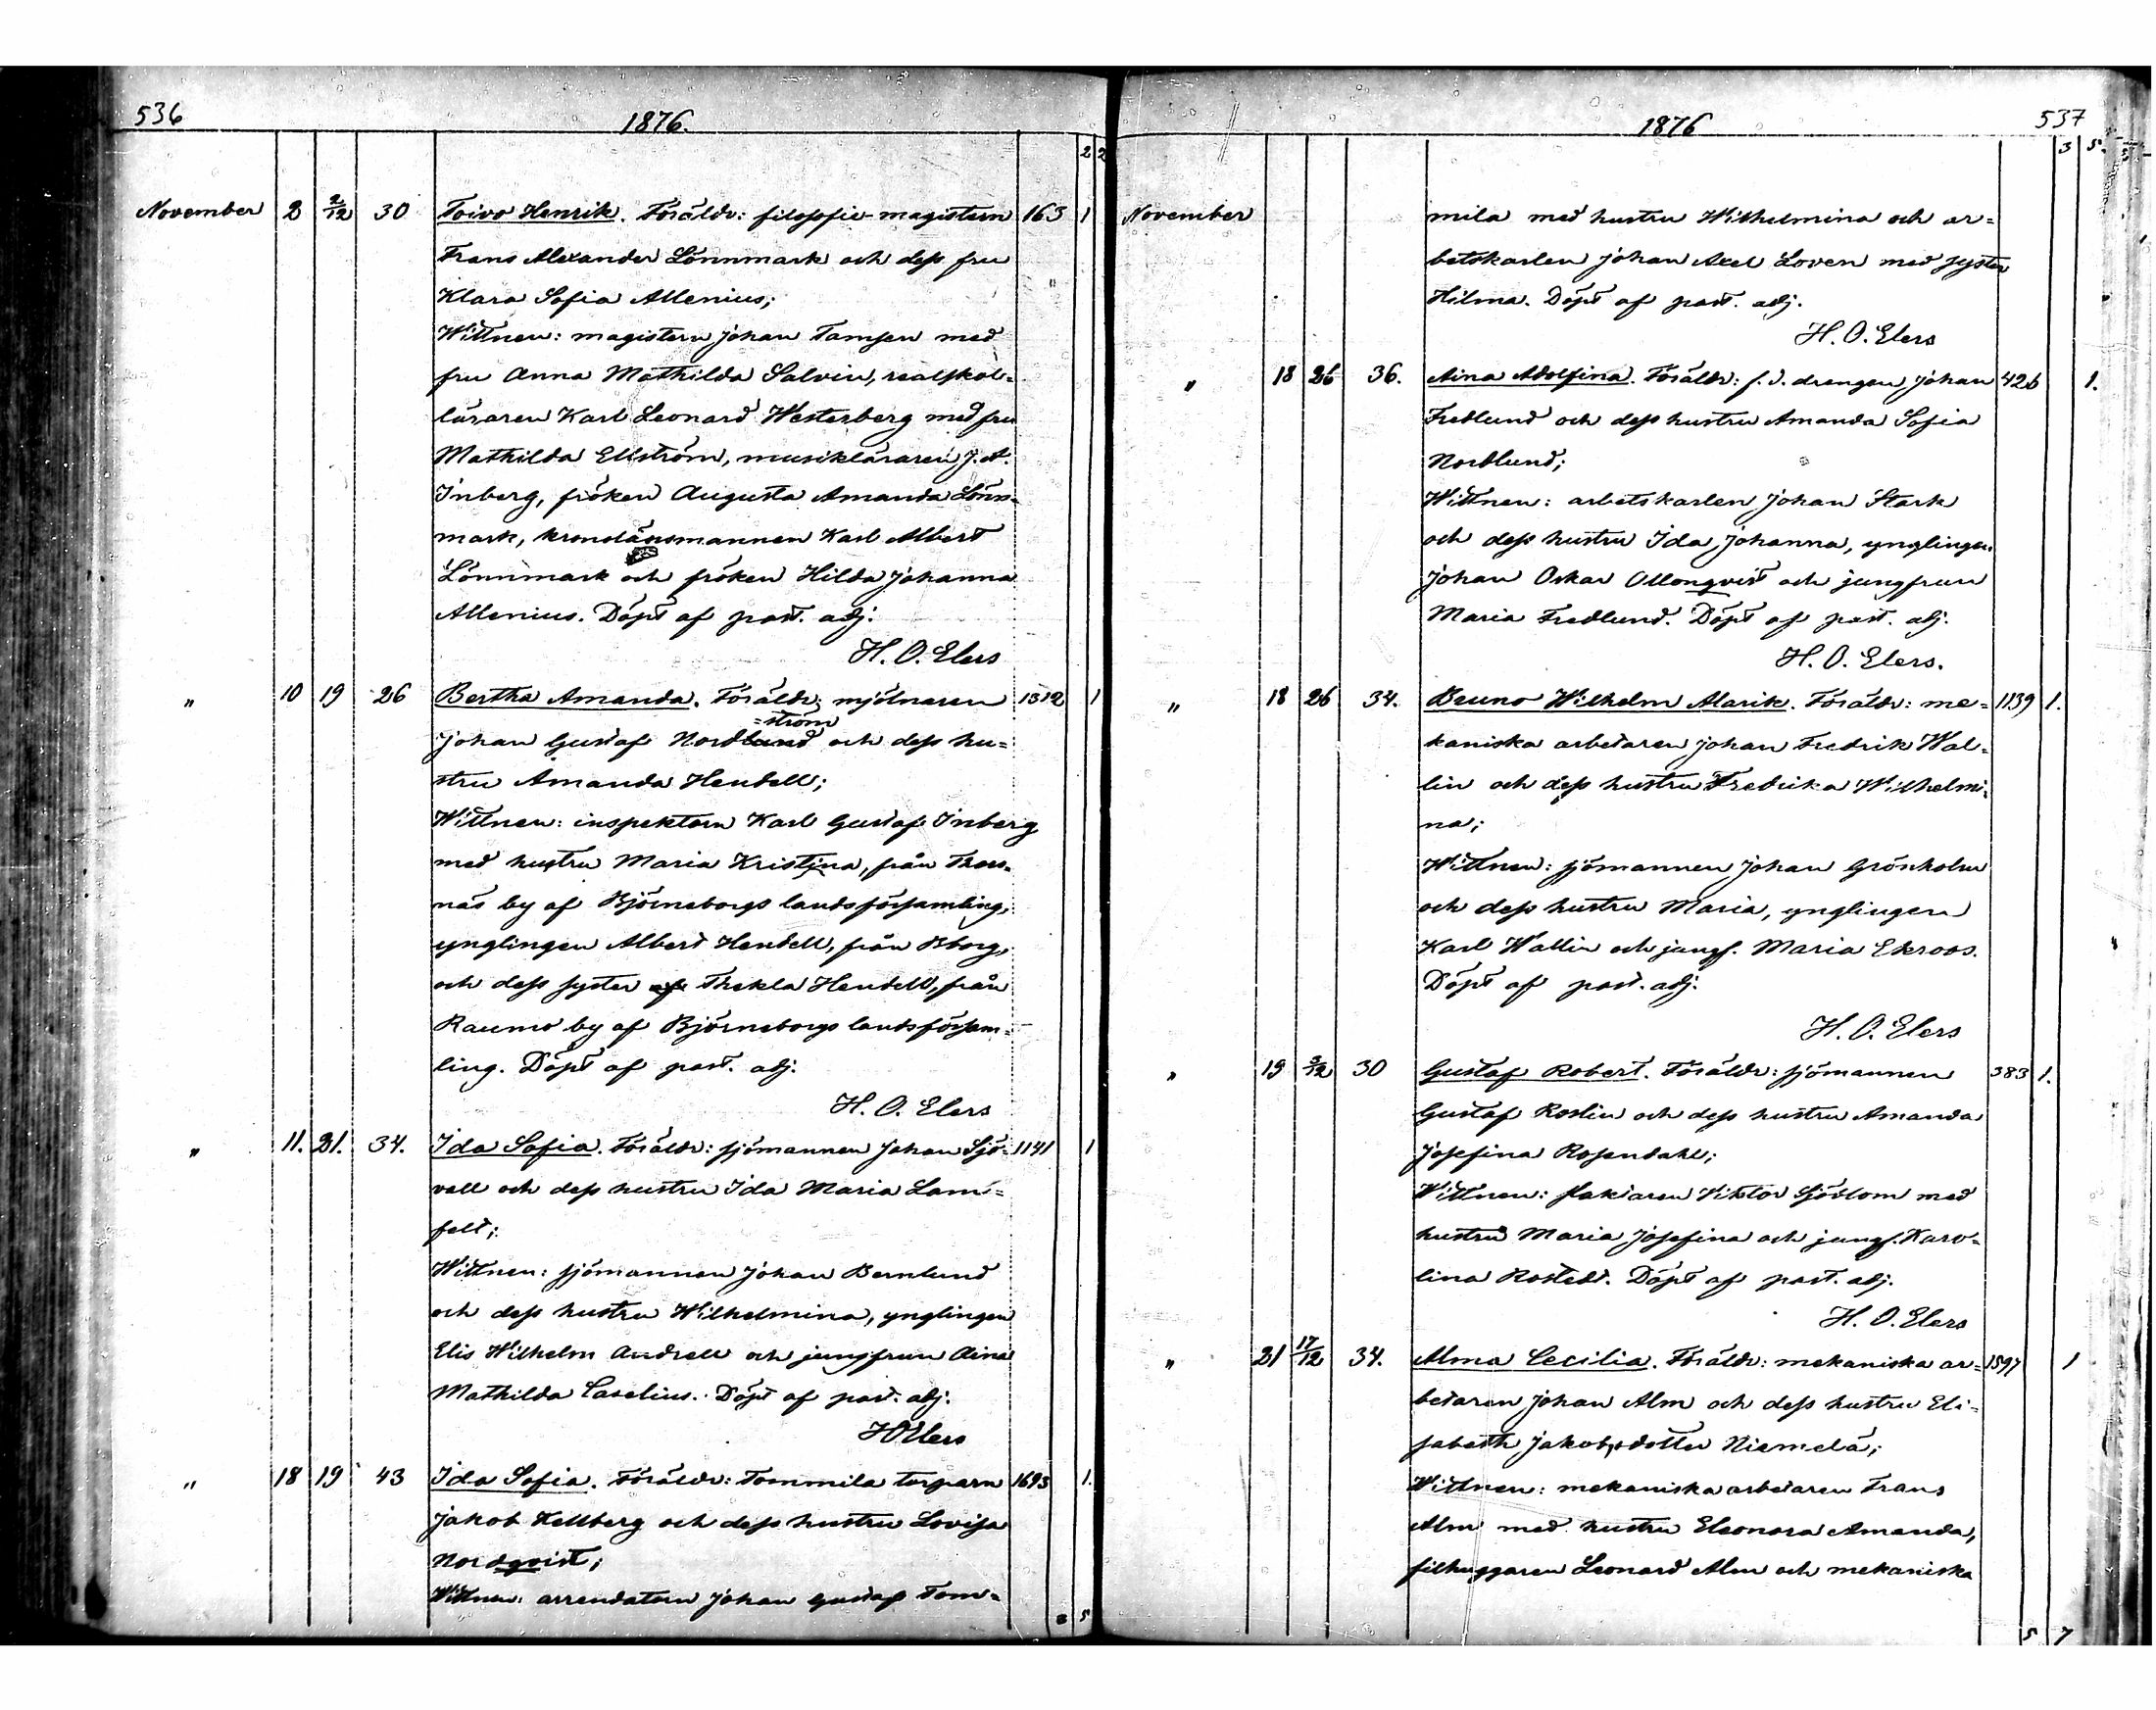 536
1876.
2 2
November 2 2/12 30 Toivo Henrik. Föräldr: filosofie-magistern 163 1
Frans Alexander Lönnmark och dess fru
Klara Sofia Allenius;
Wittnen: magistern Johan Tamsen med
fru Anna Mathilda Salvin, realskol=
läraren Karl Leonard Westerberg med fru
Mathilda Ellström, musikläraren J. A.
Inberg, fröken Augusta Amanda Lönn=
mark, kronolänsmannen Karl Albert
Lönnmark och fröken Hilda Johanna
Allenius. Döpt af past. adj.
H. O. Elers
" 10 19 26 Bertha Amanda. Föräldr: mjölnaren 1312 1
=ström
Johan Gustaf Nordlund och dess hu=
stru Amanda Hendell;
Wittnen: inspektorn Karl Gustaf Inberg
med hustru Maria Kristina, från Thors=
näs by af Björneborgs landsförsamling,
ynglingen Albert Hendell, från Bborg,
och dess syster af Thekla Hendell, från
Raumo by af Björneborgs landsförsam=
ling. Döpt af past. adj.
H. O. Elers
" 11. 21. 34. Ida Sofia. Föräldr: sjömannen Johan Sjö= 1141 1
vall och dess hustru Ida Maria Lam=
felt;
Wittnen: sjömannen Johan Bernlund
och dess hustru Wilhelmina, ynglingen
Elis Wilhelm Andrell och jungfrun Aina
Mathilda Caselius. Döpt af past. adj.
H O Elers
" 18 19 43 Ida Sofia. Föräldr: Tommila torparn 1693 1.
Jakob Hellberg och dess hustru Lovisa
Nordqvist;
Wittnen: arrendatorn Johan Gustaf Tom=
5
1876
537
3 5.
November mila med hustru Wilhelmina och ar=
betskarlen Johan Axel Loven med syster
Hilma. Döpt af past. adj.
H. O. Elers
" 18 26 36. Aina Adolfina. Föräldr: f. d. drengen Johan 426 1.
Fredlund och dess hustru Amanda Sofia
Nordlund;
Wittnen: arbetskarlen Johan Stark
och dess hustru Ida Johanna, ynglingen
Johan Oskar Ollonqvist och jungfrun
Maria Fredlund. Döpt af past. adj.
H. O. Elers.
" 18 26 34. Bruno Wilhelm Alarik. Föräldr: me= 1139 1.
kaniska arbetaren Johan Fredrik Wal=
lin och dess hustru Fredrika Wilhelmi=
na;
Wittnen: sjömannen Johan Grönholm
och dess hustru Maria, ynglingen
Karl Wallin och jungf. Maria Ekroos.
Döpt af past. adj.
H. O. Elers
" 19 3/12 30 Gustaf Robert. Föräldr: sjömannen 383 1.
Gustaf Roslin och dess hustru Amanda
Josefina Rosendahl;
Wittnen: slaktaren Viktor Sjöblom med
hustru Maria Josefina och jungf. Karo=
lina Rostedt. Döpt af past. adj.
H. O. Elers
" 21 17/12 34. Alma Cecilia. Föräldr: mekaniska ar= 1597 1
betaren Johan Alm och dess hustru Eli=
sabeth Jakobsdotter Niemelä;
Wittnen: mekaniska arbetaren Frans
Alm med hustru Eleonora Amanda,
filhuggaren Leonard Alm och mekaniska
5 7